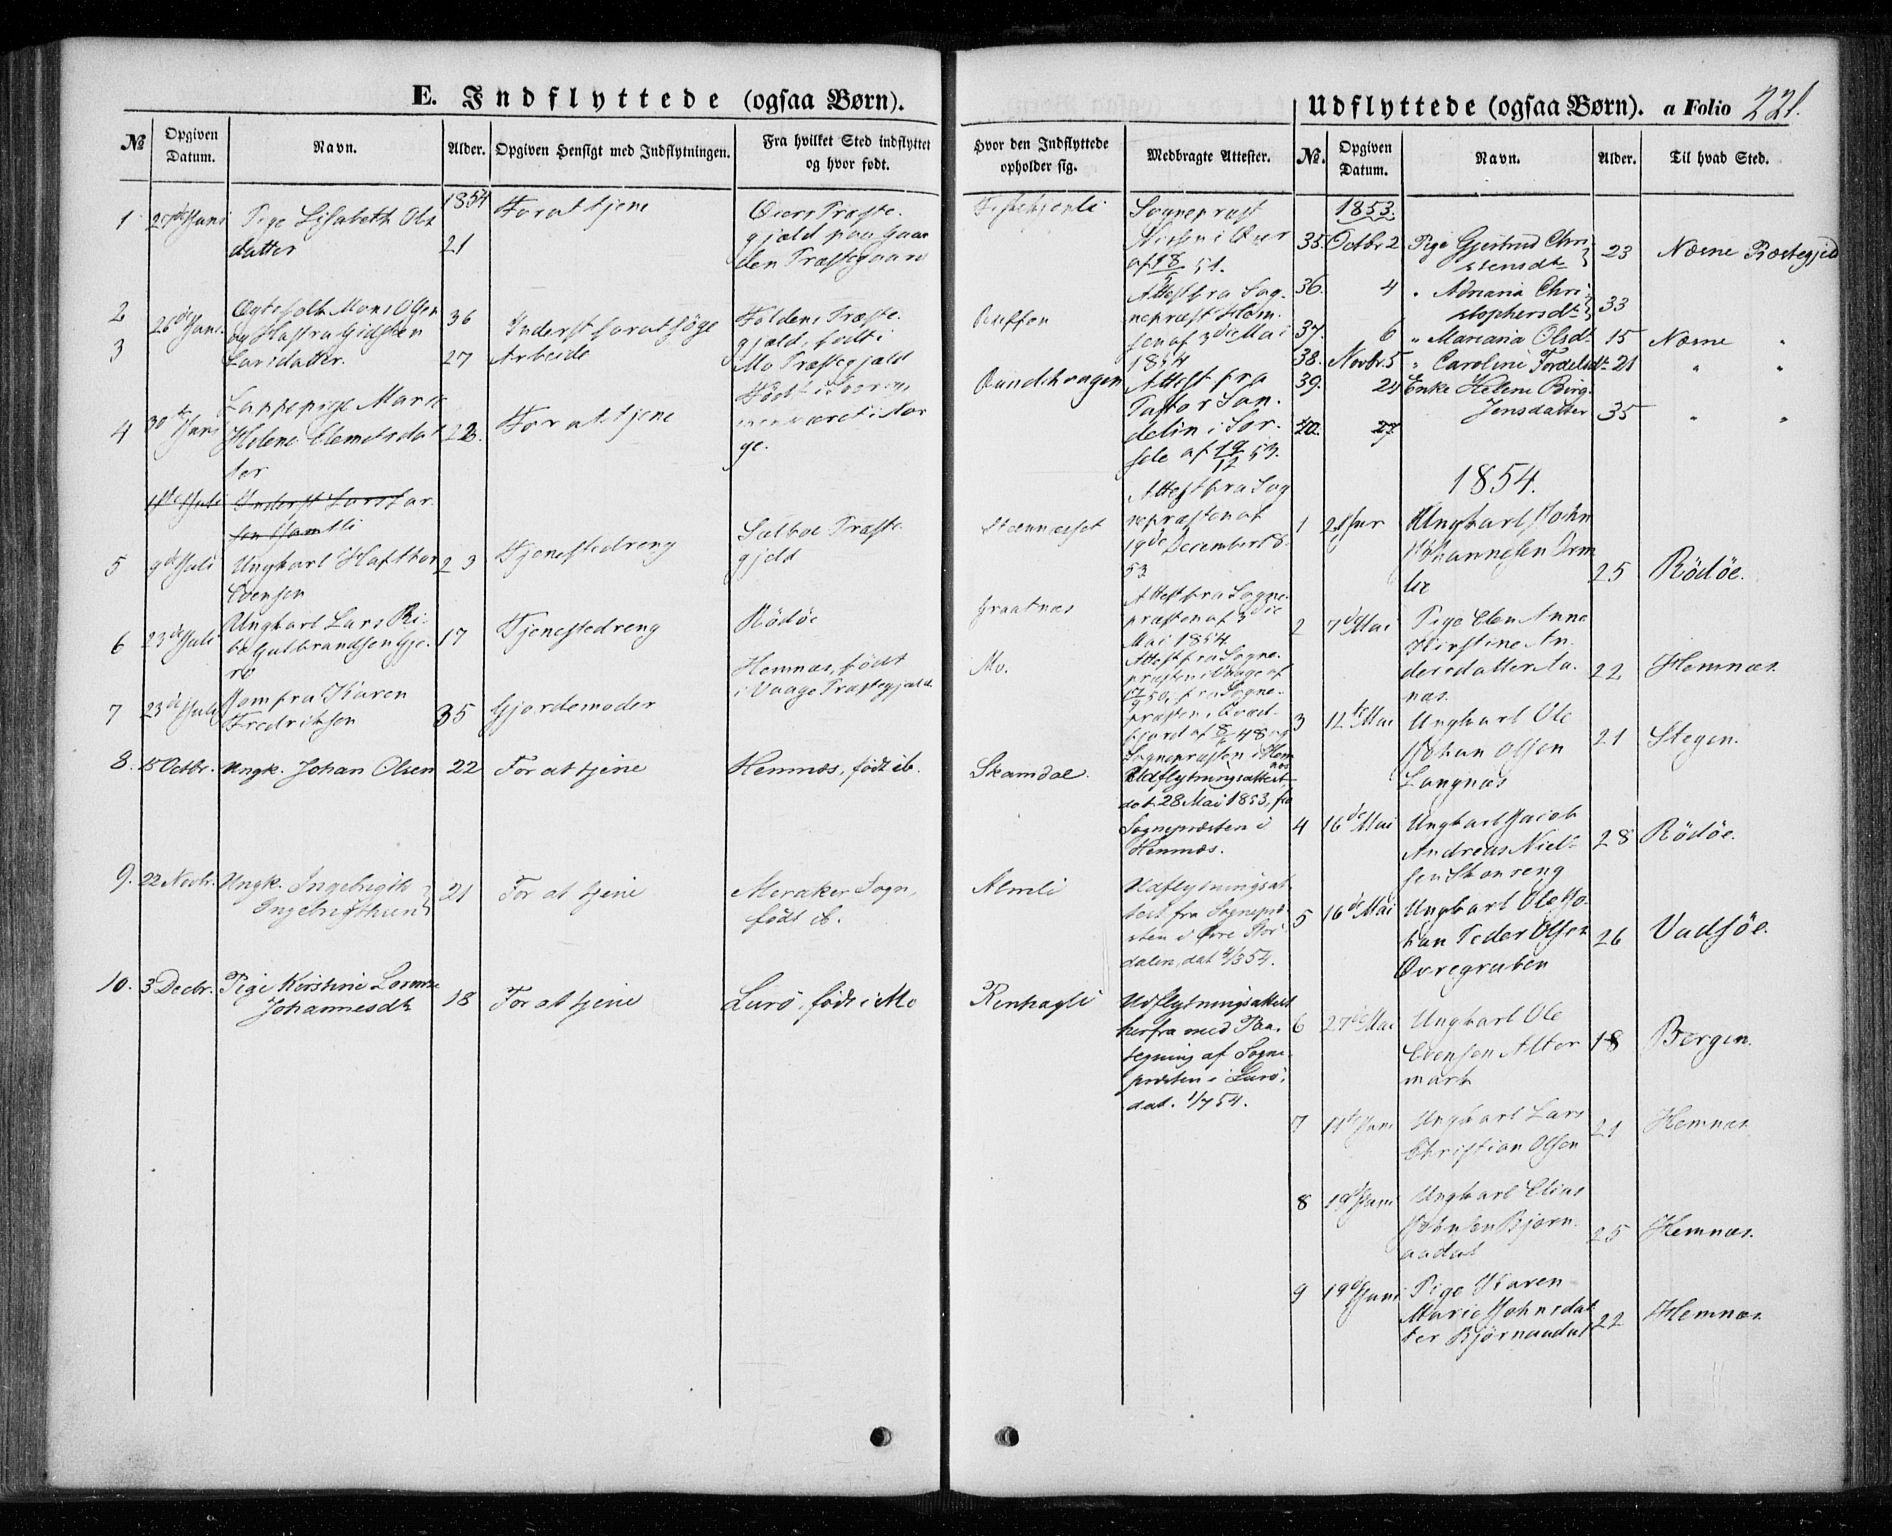 E. Indflyttede (ogsaa Børn).
№ Opgiven Datum. Navn. Alder. Opgiven Hensigt med Indflytningen. Fra hvilket Sted indflyttet og hvor født.
Hvor den Indflyttede opholder sig. Medbragte Attester.
1854
1 Juni Pige Lisabeth Ols
datter 21 For at tjene
gjæld paa Gaar
den Præstegaard
Sognepræst
af 18/5 51.
2 26de Juni Ægtefolk Mons Olsen 36 Inderst for at söge
3 Larsdatter. 27 Arbeide
Foldens Præste-
gjæld, födt i
Mo Præstegjæld
Attest fra Sog-
nepræst Holm-
sen af 3die Mai
1854
4 30te Juni Lappepige Marie
Helena Clemetsdat
ter 22. For at tjene
ge.
Attest fra
Pastor San-
delin i Sor-
sele af 19/12 53.
1ste Juli Inderst Lars Lar
sen
5 9de Juli Ungkarl Hafthor
Evensen 23 Tjenestedreng
Sælboe Præste
gjeld
Attest fra Sog
nepræsten af
19de December 18
53
6 23de Juli Ungkarl Lars Ri-
17 Tjenestedreng Rödöe
Graatnæs
Attest fra Sogne-
præsten af 3die
Mai 1854
7 23de Juli Jomfru Karen
Fredriksen 35 Gjordemoder
Hemnæs, födt
i Vaage Præstegjæld
Mo.
Attest fra Sogne-
præsten i Vaage af
50, fra Sogne-
præsten i Qvæd-
fjord af 48 og
Sognepræsten i Hem
næs
8. 15 Octbr. Ungk. Johan Olsen 22 For at tjene Hemnæs, født ib. Skamdal.
Udflytningsattest,
dat 28 Mai 1853, fra
Sognepræsten i
Hemnæs.
9. 22 Novbr. Ungk. Ingebrigth
Ingebrigthsen 21 For at tjene
Meraker Sogn,
født ib. Almli
Udflytningsat
test fra Sognepræ
sten i Øvre Stør
dalen, dat 4/3 54.
10. 3 Decbr. Pige Kirstine Lorentze
Johannesdt. 18 For at tjene Lurö, født i Mo
Renhagli
Udflytningsattest
herfra med Paa-
tegning af Sogne-
præsten i Lurö,
dat. 1/7 54.
Udflyttede (ogsaa Børn). a Folio 221.
№. Opgiven Datum. Navn. Alder. Til hvad Sted.
1853.
35. Octbr. 2 Pige Gjertrud Chri-
stensdt. 23 Næsne Præstegjeld
36. 4 " Adriana Chri-
stophersdt. 33
37. 6 " Mariana Olsdt. 15 Næsne "
38. Novbr. 5 " Caroline Tordelsdt. 21 " "
39. 24 Enke Helene Birg.
Jensdatter 35 " "
40. 27
1854.
1 Ungkarl John
Johannesen Orm
lie 25 Rödöe.
2 7de Mai Pige Elen Anne
Kirstine An-
dersdatter Aa-
næs. 22 Hemnæs
3 12te Mai Ungkarl Ole
Johan Olsen
Langnæs 21 Stegen.
4 16de Mai Ungkarl Jacob
Andreas Niel-
sen Stonreng 28 Rödöe.
5 16de Mai Ungkarl Ole Jo-
han Peder Olsen
Øvregruben 26 Vadsöe.
6 27de Mai Ungkarl Ole
Evensen Alter
mark 18 Bergen.
7 11te Juni Ungkarl Lars
Christian Olsen 21 Hemnæs
8 19de Juni Ungkarl Elias
Johnsen Bjørn-
aadal 25 Hemnæs.
9 19de Juni Pige Karen
Marie Johnsdat
ter Bjørnaadal 22 Hemnæs